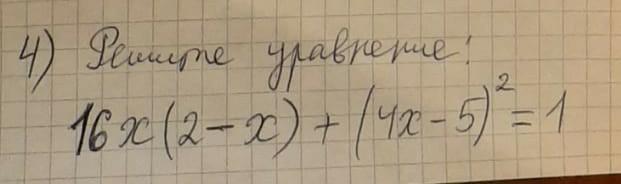 4) Решите уравнение:
16x(2-x)+(4x-5)²=1